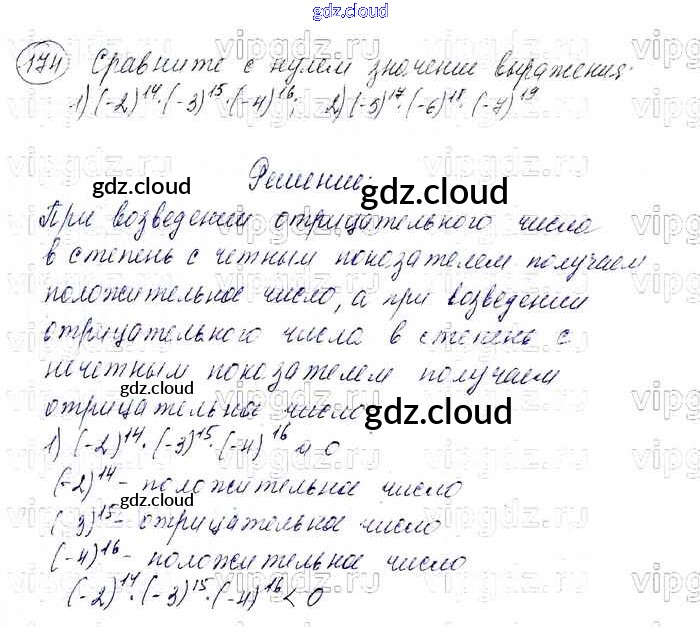 gdz.cloud
174 Сравните с нулем значение выражения:
1) (-2)^14·(-3)^15·(-4)^16; 2) (-5)^17·(-6)^18·(-7)^19
Решение:
gdz.cloud gdz.cloud
При возведении отрицательного числа
в степень с четным показателем получаем
положительное число, а при возведении
отрицательного числа в степень с
нечетным показателем получаем
gdz.cloud
отрицательное число.
gdz.cloud
1) (-2)^14·(-3)^15·(-4)^16 и 0
(-2)^14 - положительное число
gdz.cloud
(-3)^15 - отрицательное число
(-4)^16 - положительное число
(-2)^14·(-3)^15·(-4)^16 < 0
vipgdz.ru